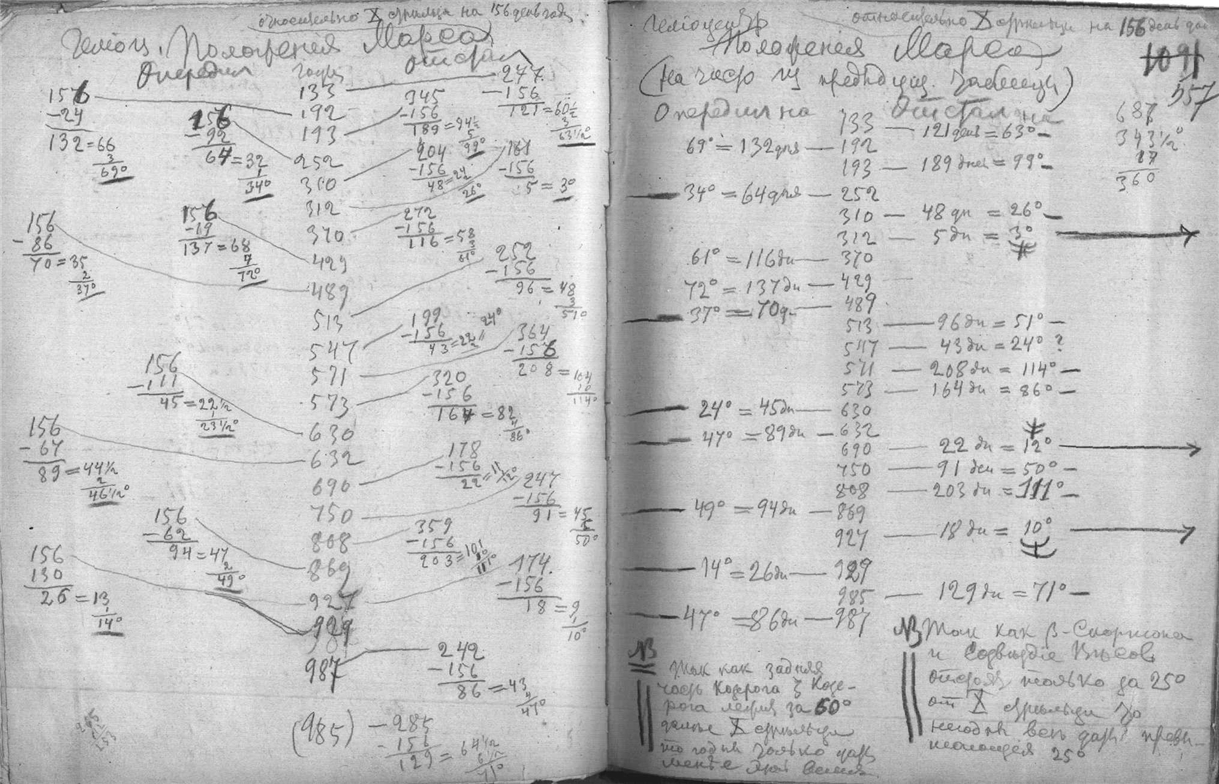 относительно X стрельца на 156 день год
Гелиоц. Положенія Марса
Опередил годы отстал
156
-24
132=66
3
69°
156
-92
64=32
34°
156
-86
70=35
2
37°
156
-19
137=68
7
72°
156
-111
45=22½
1
23½°
156
-67
89=44½
2
46½°
156
-62
94=47
2
49°
156
130
26=13
1
14°
133
192
193
252
310
312
370
429
489
513
547
571
573
630
632
690
750
808
869
927
929
987
345
-156
189=94½
5
99°
247
-156
121=60½
3
63½°
204
-156
48=24
26°
161
-156
5=3°
272
-156
116=58
3
61°
252
-156
96=48
3
51°
199
-156
43=22
24°
364
-156
208=104
10
114°
320
-156
164=82
4
86°
178
-156
22=11
12°
247
-156
91=45
5
50°
359
-156
203=101
111°
174
-156
18=9
1
10°
242
-156
86=43
4
47°
(985) -285
-156
129=64½
6½
71°
Гелиоцентр относительно X стрельца на 156 день
Положенія Марса
(на число из предыдущ. таблицы)
1091
557
687
343½°
17
360
Опередил на Отстал на
133 — 121 дня = 63°
69° = 132 дня — 192
193 — 189 дней = 99°
34° = 64 дня — 252
310 — 48 дн = 26°
312 — 5 дн = 3°
61° = 116 дн — 370
72° = 137 дн — 429
37° = 70 д — 489
513 — 96 дн = 51°
547 — 43 дн = 24° ?
571 — 208 дн = 114°
573 — 164 дн = 86°
24° = 45 дн — 630
47° = 89 дн — 632
690 — 22 дн = 12°
750 — 91 дн = 50°
808 — 203 дн = 111°
49° = 94 дн — 869
927 — 18 дн = 10°
14° = 26 дн — 929
985 — 129 дн = 71°
47° = 86 дн — 987
NB
Так как задняя
часть Козерога ξ Козе-
рога лежит за 60°
далее X стрельца
то годы только
NB Так как β-Скорпиона
и Созвездіе Вѣсов
отстоят только до 25°
от X стрельца то
25°